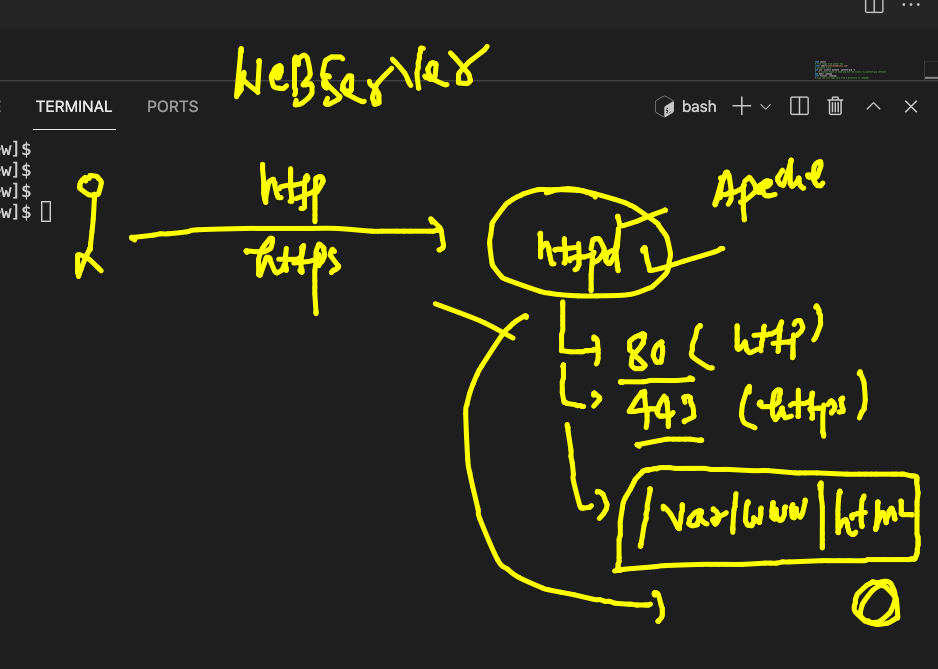 WeBServer
TERMINAL
PORTS
bash
w]$
w]$
w]$
w]$
http
https
Apache
httpd
80 (http)
443 (https)
/var/www/html